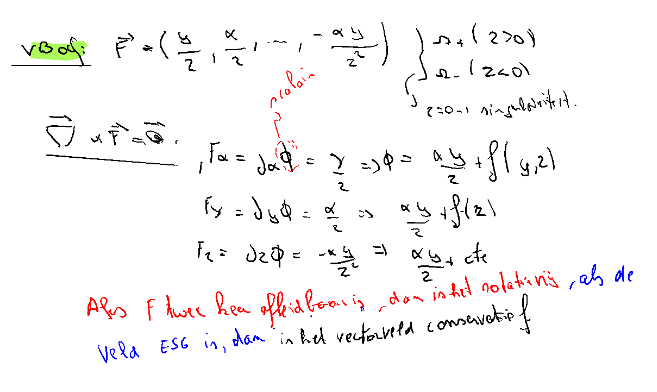 VBof: F⃗ = (y/z, x/z, ..., -xy/z²) } Ω+ (z>0)
Ω- (z<0)
z=0 → singulariteit.
scalair
∇⃗ × F⃗ = 0⃗.
, Fx = ∂xϕ = y/z => ϕ = xy/z + f(y,z)
Fy = ∂yϕ = x/z => xy/z + f(z)
Fz = ∂zϕ = -xy/z² => xy/z + cte
Als F twee keer afleidbaar is, dan is het rotatievrij, als de
veld ESG is, dan is het vectorveld conservatief